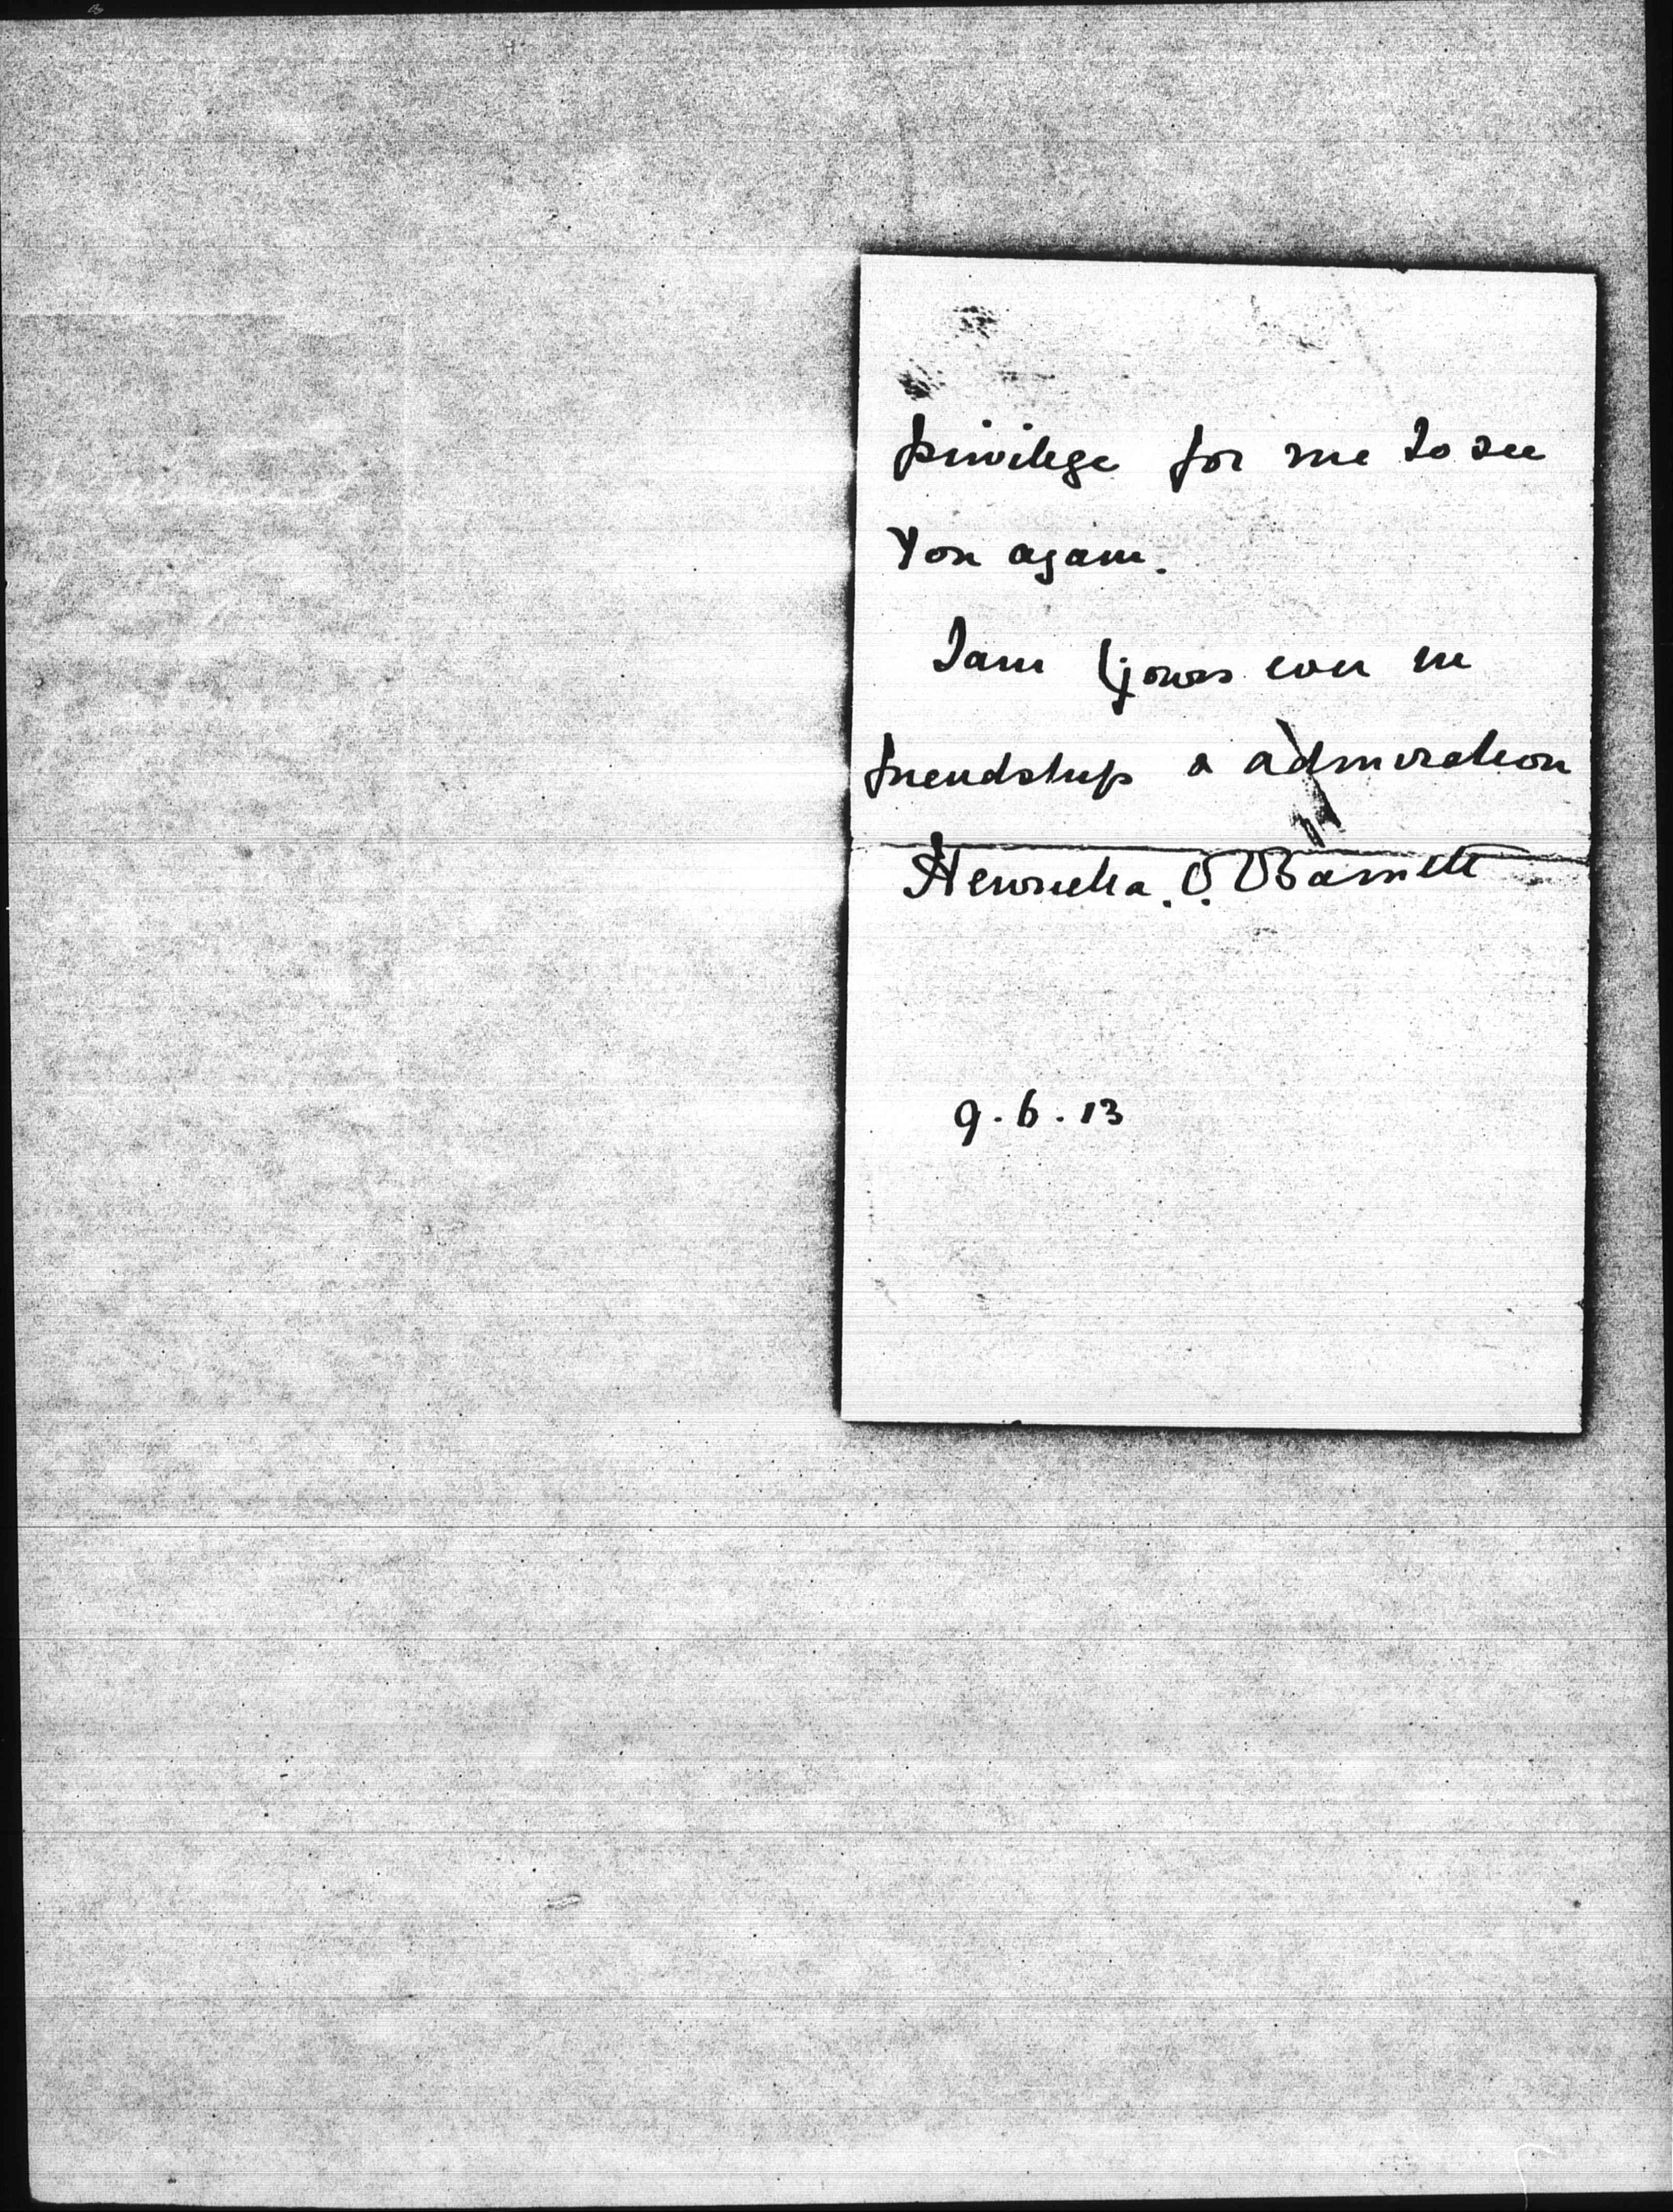 privilege for me to see
you again.
I am yours ever in
friendship & admiration
Henrietta. O. Barnett
9.6.13